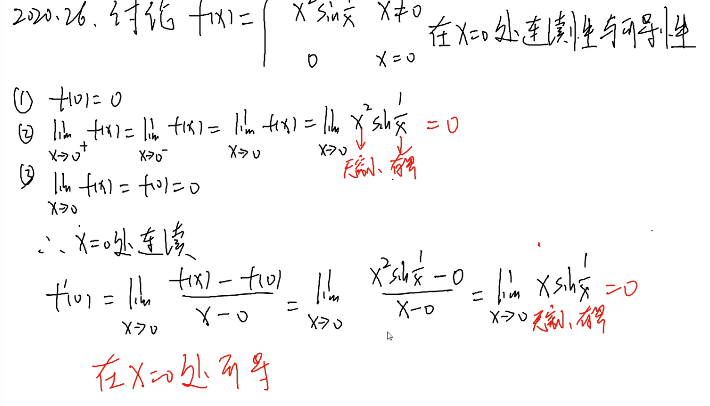 2020.26. 讨论 f(x) = { x² sin 1/x  x≠0
0  x=0 在x=0处连续性与可导性
① f(0) = 0
② lim x→0⁺ f(x) = lim x→0⁻ f(x) = lim x→0 f(x) = lim x→0 x² sin 1/x = 0
无穷小 有界
③ lim x→0 f(x) = f(0) = 0
∴ x=0处连续
f'(0) = lim x→0 (f(x) - f(0))/(x-0) = lim x→0 (x² sin 1/x - 0)/(x-0) = lim x→0 x sin 1/x = 0
无穷小 有界
在x=0处可导